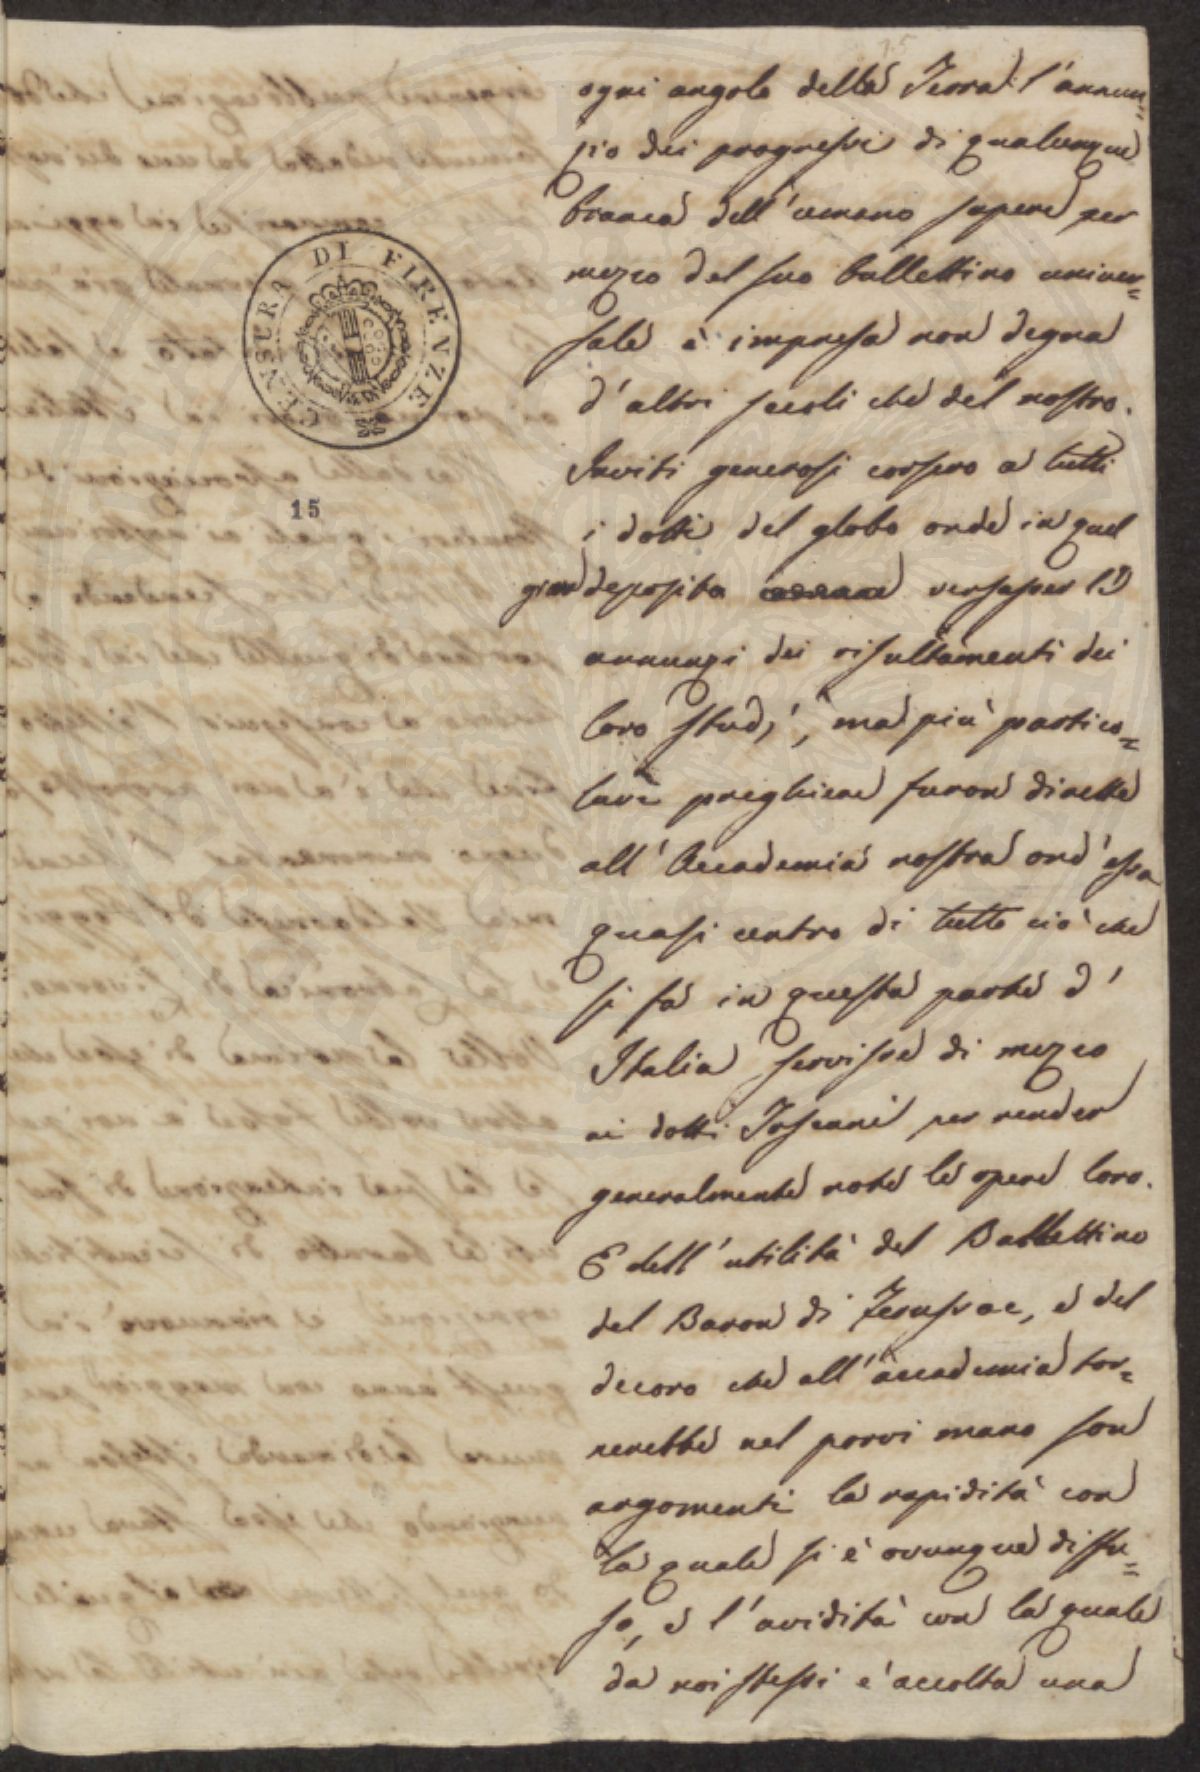 ogni angolo della Terra l'annun=
zio dei progressi di qualunque
branca dell'umano sapere per
mezzo del suo bullettino univer=
sale è impresa non degna
d'altri secoli che del nostro.
Inviti generosi corsero a tutti
i dotti del globo onde in quel
gran deposito versasser gli
annunzi dei risultamenti dei
loro studj, ma più partico=
lari preghiere furon dirette
all'Accademia nostra ond'essa
quasi centro di tutto ciò che
si fa in questa parte d'
Italia servisse di mezzo
ai dotti Toscani per render
generalmente note le opere loro.
E dell'utilità del Bullettino
del Baron di Ferussac, e del
decoro che all'accademia tor=
nerebbe nel porvi mano son
argomenti la rapidità con
la quale si è ovunque diffu=
so, e l'avidità con la quale
da noi stessi è accolta una
CENSURA DI FIRENZE
15